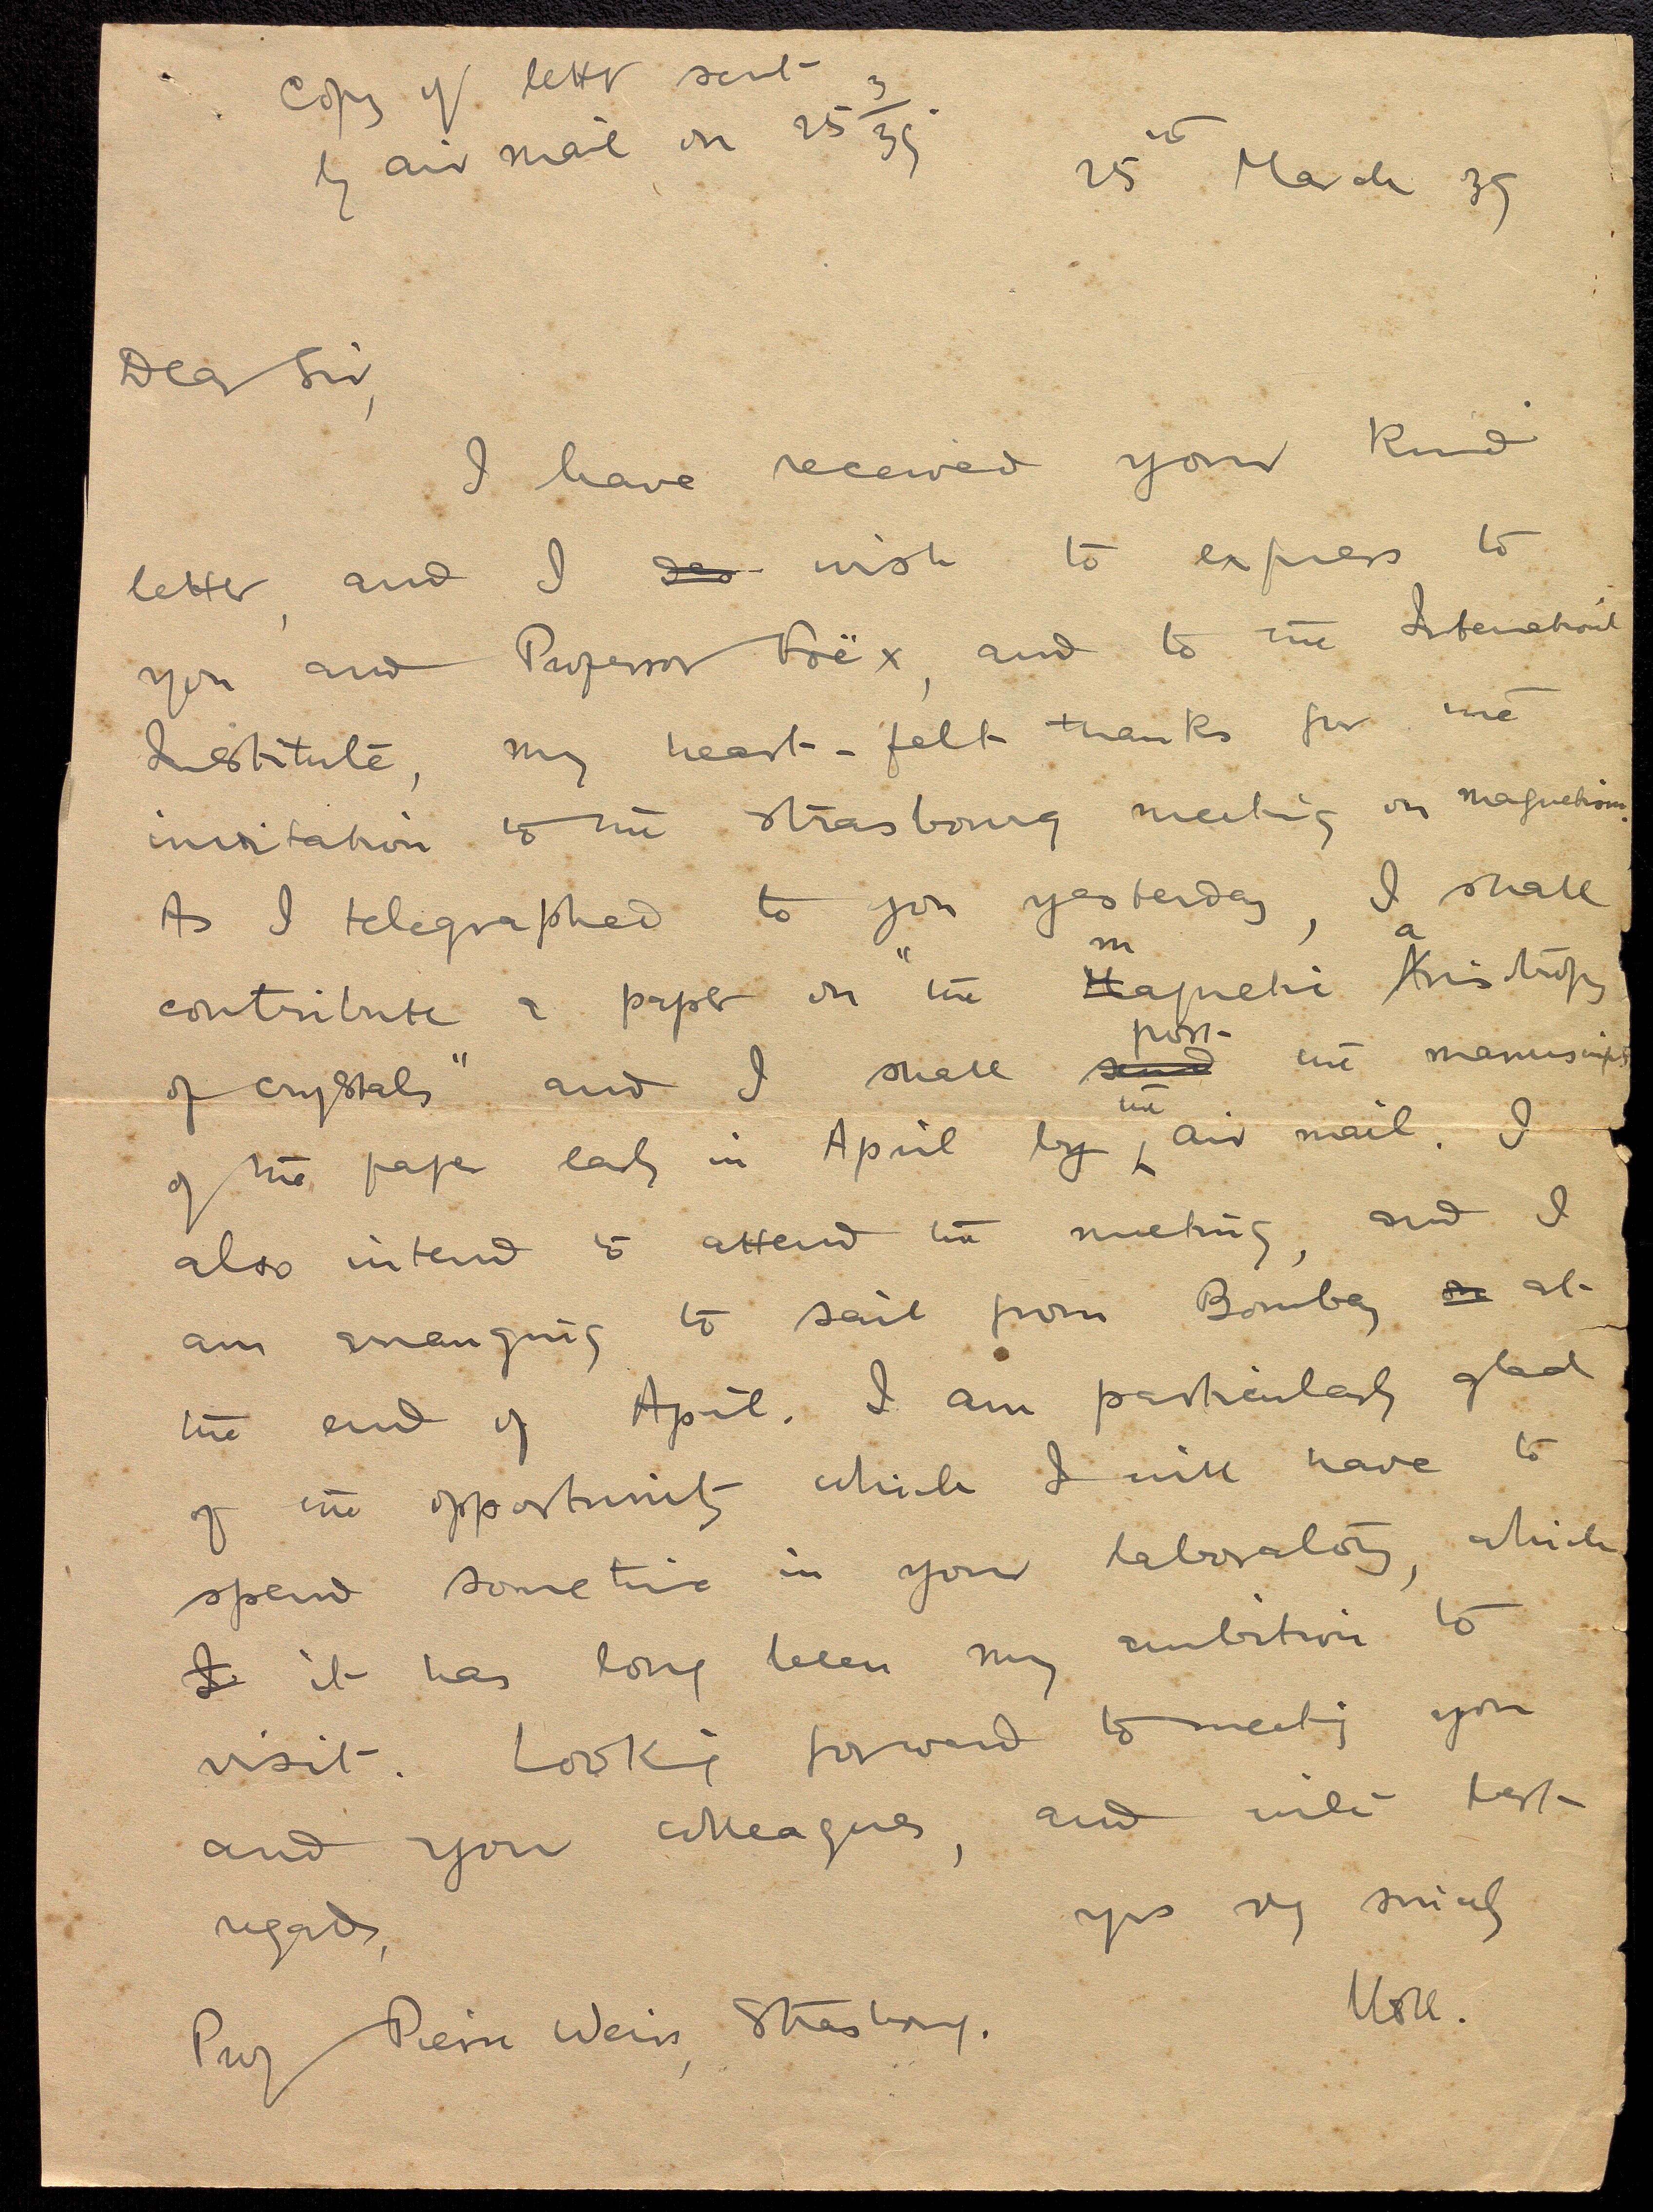 Copy of letter sent
by air mail on 25 3/39.
25th March 39
Dear Sir,
I have received your kind
letter, and I wish to express to
you and Professor Foëx, and to the International
Institute, my heart-felt thanks for the
invitation to the Strasbourg meeting on magnetism.
As I telegraphed to you yesterday, I shall
contribute a paper on "the magnetic anisotropy
of crystals" and I shall post the manuscript
of the paper early in April by the air mail. I
also intend to attend the meeting, and I
am arranging to sail from Bombay at
the end of April. I am particularly glad
of the opportunity which I will have to
spend sometime in your laboratory, which
it has long been my ambition to
visit. Looking forward to meeting you
and your colleagues, and with best
regards,
yrs vy sincely
KSK.
Prof Pierre Weiss, Strasbourg.